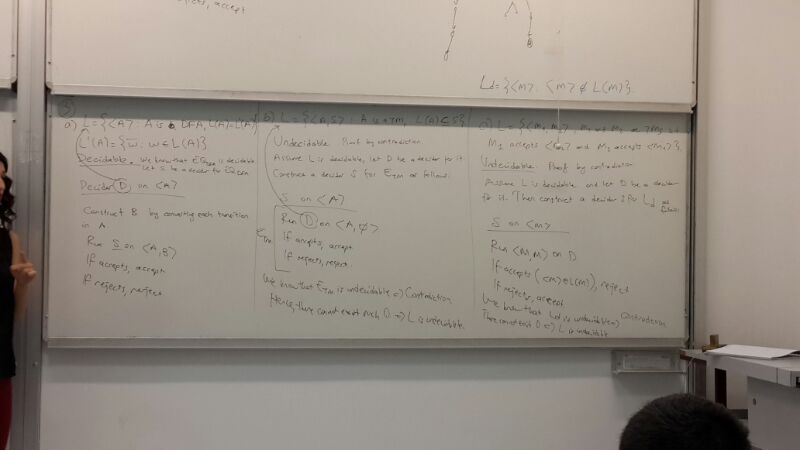 accept
Ld = {<M>: <M> ∉ L(M)}
3)
a) L = {<A>: A is a DFA, L(A)=L'(A)}
L'(A) = {w̄ : w ∈ L(A)}
Decidable. We know that EQ is decidable
Let S be a decider for EQ
Decider D on <A>
Construct B by converting each transition
in A.
Run S on <A,B>
If accepts, accept
If rejects, reject
b) L = {<A,S>: A is a TM, L(A) ⊆ S}
Undecidable Proof by contradiction.
Assume L is decidable, let D be a decider for it.
Construct a decider S for ETM as follows:
S on <A>
ETM
Run D on <A,∅>
If accepts, accept
If rejects, reject
We know that ETM is undecidable => Contradiction
Hence, there cannot exist such D => L is undecidable
c) L = {<M1, M2>: M1 and M2 are TMs and
M1 accepts <M2> and M2 accepts <M1>}.
Undecidable: Proof by contradiction
Assume L is decidable and let D be a decider
for it. Then construct a decider S for Ld as
S on <M>
Run <M,M> on D
If accepts (<M> ∈ L(M)), reject
If rejects, accept
We know that Ld is undecidable => Contradiction
There cannot exist D => L is undecidable